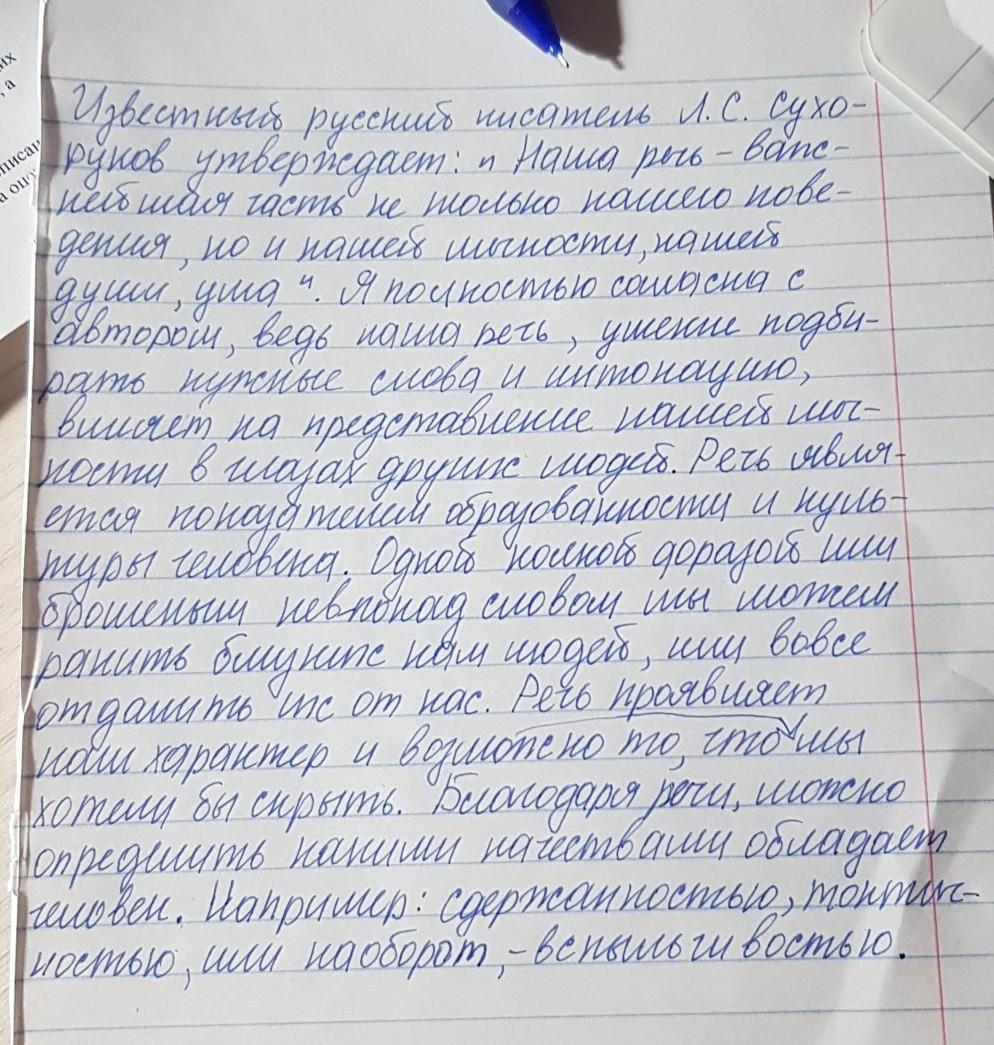 их
, а
описан
а оцу
Известный русский писатель Л.С. Сухо-
руков утверждает: " Наша речь – важ-
нейшая часть не только нашего пове-
дения, но и нашей личности, нашей
души, ума ". Я полностью согласна с
автором, ведь наша речь, умение подби-
рать нужные слова и интонацию,
влияет на представление нашей лич-
ности в глазах других людей. Речь явля-
ется показателем образованности и куль-
туры человека. Одной колкой фразой или
брошеным невпопад словом мы можем
ранить близких нам людей, или вовсе
отдалить их от нас. Речь проявляет
наш характер и возможно то, что мы
хотели бы скрыть. Благодаря речи, можно
определить какими качествами обладает
человек. Например: сдержанностью, тактич-
ностью, или наоборот, - вспыльчивостью.